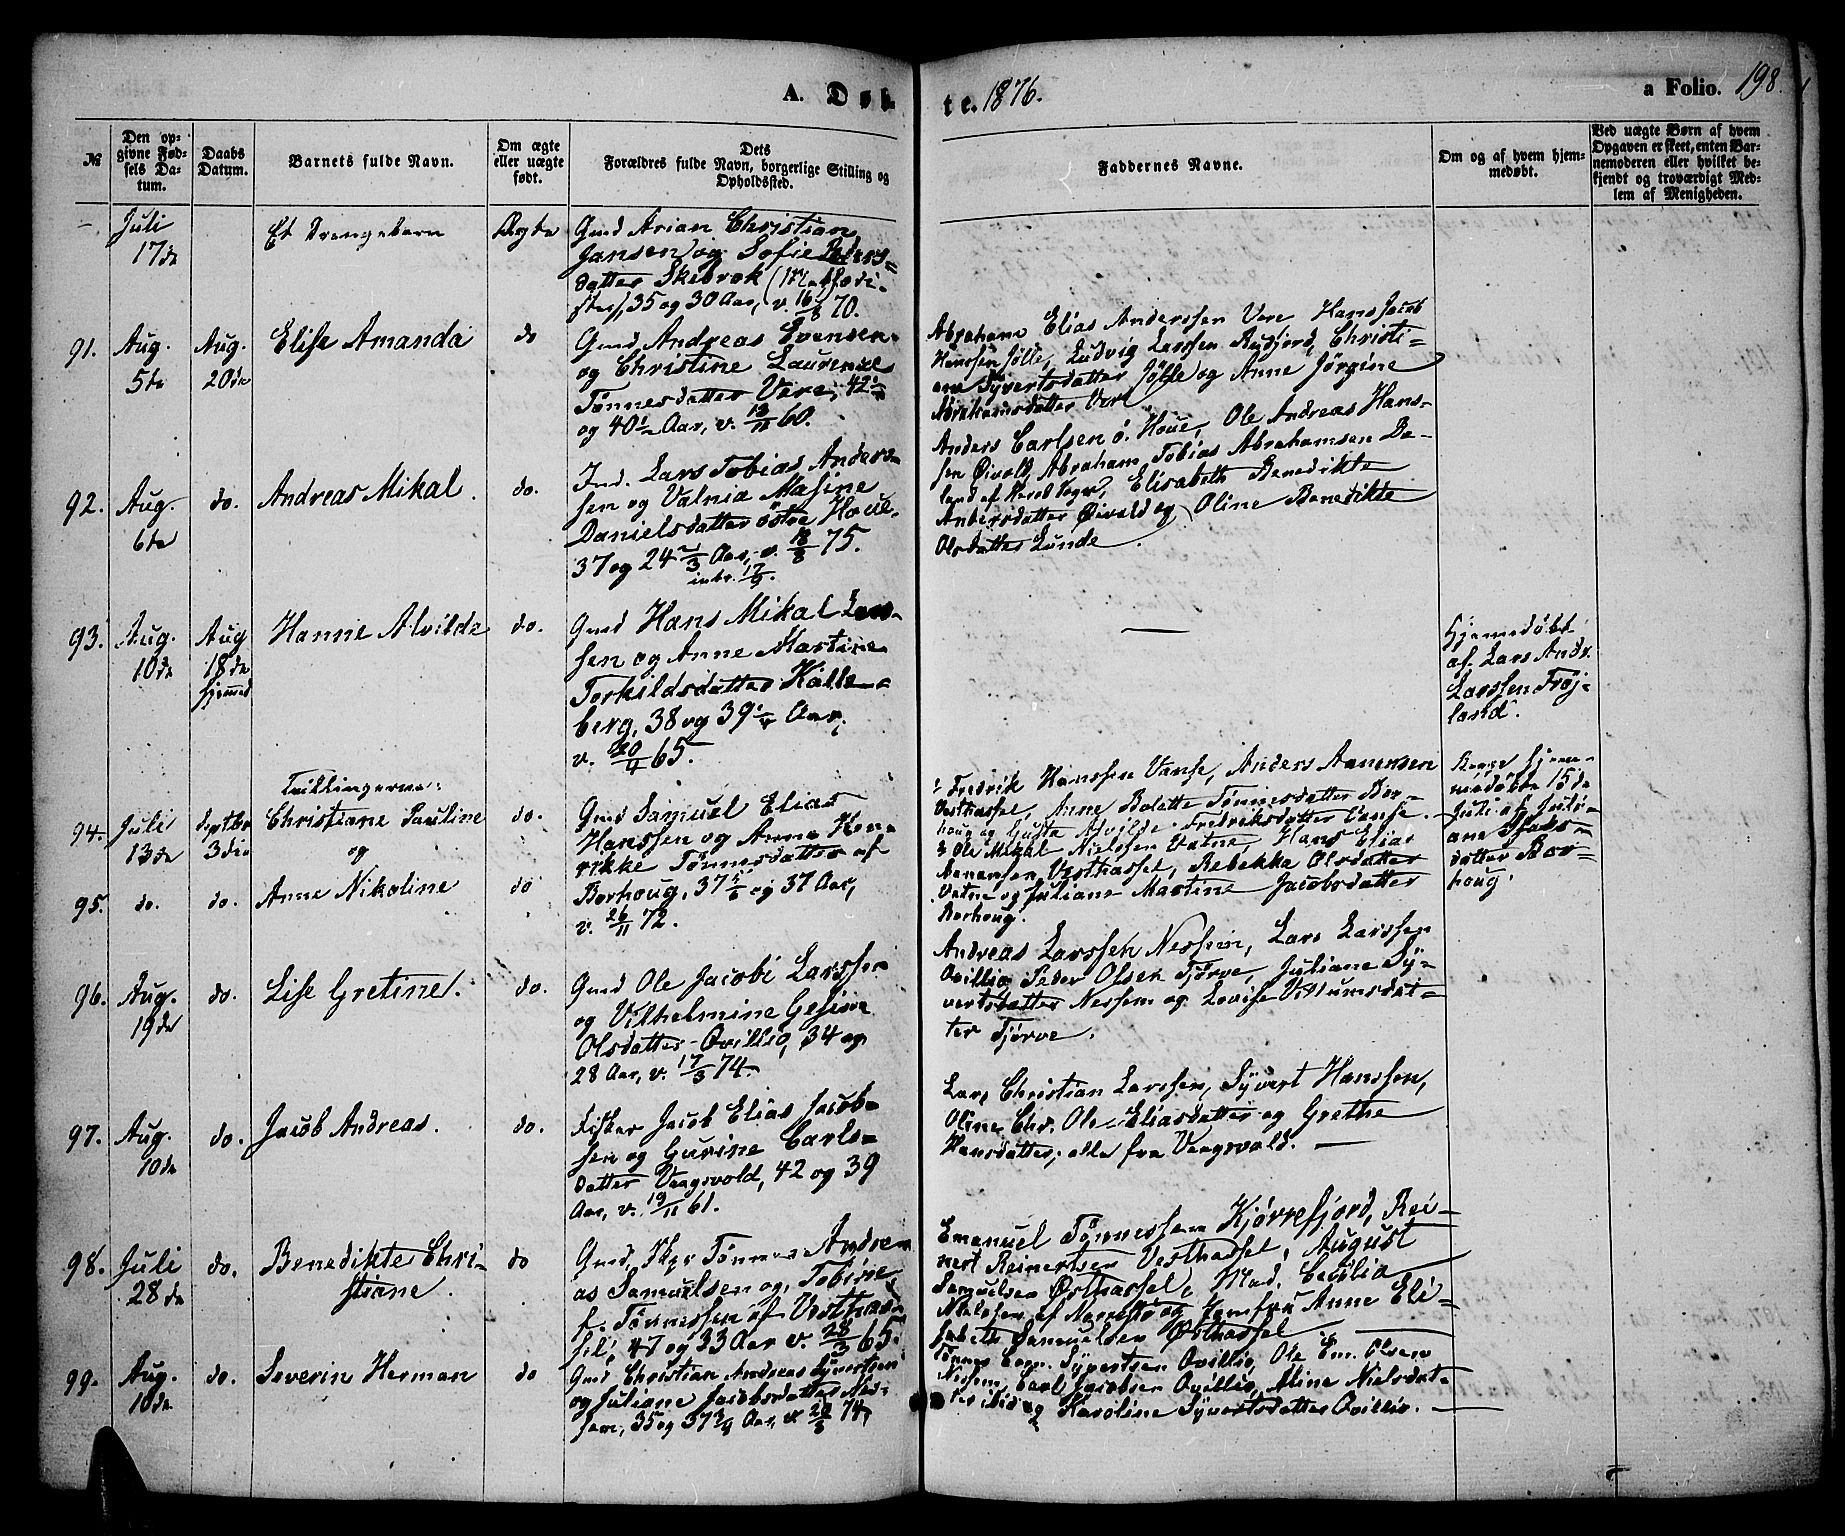 A. Døb-
te. 1876.
a Folio. 198.
№
Den op-
givne Fød-
sels Da-
tum.
Daabs
Datum.
Barnets fulde Navn.
Om ægte
eller uægte
født.
Dets
Forældres fulde Navn, borgerlige Stilling og
Opholdssted.
Faddernes Navne.
Om og af hvem hjem-
medøbt.
Ved uægte Børn af hvem
Opgaven er skeet, enten Bar-
nemoderen eller hvilket be-
kjendt og troværdigt Med-
lem af Menigheden.
—
Juli
17de
Et Drengebarn
Ægte
Gmd Arian Christian
Jansen og Sofie Peders-
datter Skebrok (Methodi-
ster), 35 og 30 Aar, v. 16/8 70.
91.
Aug.
5te
Aug.
20de
Elise Amanda
do
Gmd Andreas Evensen
og Christine Laurense
Tønnesdatter Vere, 42
og 40 Aar, v. 13/11 60.
Abraham Elias Anderssen Vere Hans Jacob
Hanssen Jølle, Ludvig Larssen Rudjord, Christi-
ane Syvertsdatter Jølle og Anne Jørgine
Abrahamsdatter Vere
92.
Aug.
6te
do.
Andreas Mikal.
do.
Ind. Lars Tobias Anders-
sen og Valnia Masine
Danielsdatter østre Houe
37 og 24 2/3 Aar, v. 18/8 75.
intr. 17/9.
Anders Carlsen ø. Houe, Ole Andreas Hans-
sen Øivold, Abraham Tobias Abrahamsen Da-
land af Hereds Sogn, Elisabeth Benedikte
Andersdatter Øivold og Oline Benedikte
Olsdatter Lunde.
93.
Aug.
10de
Aug
18de
hjemmed
Hanne Alvilde
do.
Gmd Hans Mikal Lars-
sen og Anne Martine
Torkildsdatter Kalle-
berg, 38 og 39 Aar,
v. 20/4 65.
—
Hjemmedøbt
af Lars Andr.
Larssen Frøj-
land.
Tvillingerne:
94.
Juli
13de
Septbr
3die
Christiane Pauline
og
do.
Gmd Samuel Elias
Hanssen og Anna Hen-
rikke Tønnesdatter af
Borhoug, 37 5/6 og 37 Aar,
v. 26/11 72.
Fredrik Hanssen Vanse, Anders Aanensen
Vesthassel, Anne Bolette Tønnesdatter Bor-
houg og Gusta Alvilde Fredriksdatter Vanse.
Ole Mikal Nielssen Vatne, Hans Elias
Aanensen Vesthassel, Rebekka Olsdatter
Vatne og Juliane Martine Jacobsdatter
Borhoug.
Begge hjem-
medøbte 15de
Juli af Juli-
ane Isaks-
datter Bor-
houg.
95.
do.
do.
Anne Nikoline
do
96.
Aug.
19de
do.
Lise Gretine.
do.
Gmd Ole Jacobi Larssen
og Vilhelmine Gesine
Olsdatter Qvillio, 34 og
28 Aar, v. 17/3 74.
Andreas Larssen Nessem, Lars Larssen
Qvillio, Peder Olsen Tjørve, Juliane Sy-
vertsdatter Nessem og Lovise Villumsdat-
ter Tjørve.
97.
Aug.
10de
do.
Jacob Andreas.
do.
Fisker Jacob Elias Jacob-
sen og Gurine Carls-
datter Vaagsvold, 42 og 39
Aar, v. 19/11 61.
Lars Christian Larssen, Syvert Hanssen,
Oline Chr. Ole Eliasdatter og Grethe
Hansdatter, alle fra Vaagsvold. —
98.
Juli
28de
do.
Benedikte Chri-
stiane.
do
Gmd Skpr Tønnes Andre-
as Samuelsen og Tobine
f. Tønnessen af Vesthas-
sel, 47 og 33 Aar v. 28/3 65.
Emanuel Tønnessen Kjørrefjord, Rei-
nert Reinertsen Vesthassel, August
Samuelsen Østhassel, Mad. Cecilia
Nielssen af og Jomfru Anne Eli-
sabeth Samuelsen Østhassel —
99.
Aug.
10de
do.
Severin Herman
do
Gmd Christian Andreas Syvertsen
og Juliane Jacobsdatter Nes-
sem, 35 og 37 Aar, v. 20/3 74
Tønnes Syvertsen Qvillio, Ole Em. Olsen
Nessem, Carl Jacobsen Qvillio, Aline Nielsdat-
ter ibid og Karoline Syvertsdatter Qvillio. —